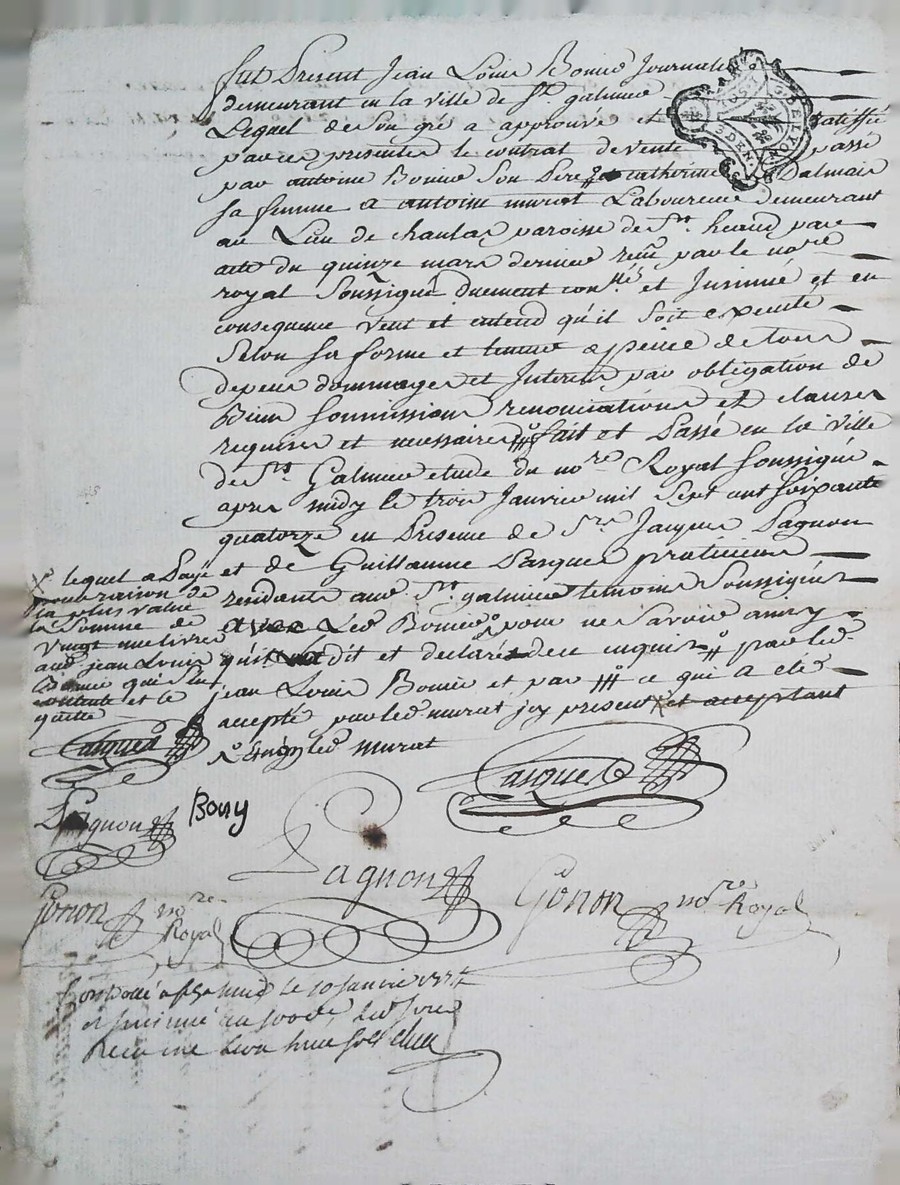 fut Present Jean Louis Bonnier Journalier
demeurant en la ville de St. galmier
Lequel de son gré a approuvé et ratiffié
par ces presentes le contrat de vente passé
par antoine Bonnier son Pere et catherine Dalmais
sa femme a antoine murat Laboureur demeurant
au Lieu de chaulas paroisse de St. heand par
acte du quinze mars dernier reçu par le nore
royal soussigné duement conllé et Jnsinué et en
consequence veut et entend qu'il soit executé
selon sa forme et teneur a peine de tous
depens dommages et Jnterets par obligation de
Biens soumissions renonciations et clauses
requises et necessaires fait et Passé en la ville
de St. Galmier etude du nore Royal soussigné
apres midy le trois Janvier mil sept cent soixante
quatorze en Presence de Srs Jacques Pagnon
et de Guillaume Pasques praticiens
residents aud St. galmier temoins soussignés
avec Led Bonnier pour ne savoir
qu'il dit et declaré de ce enquis par led
jean Louis Bonnier et par ce qui a eté
accepté par led murat jcy present et acceptant
led murat
x lequel a Payé
pour raison de
la plus value
la somme de
vingt une livres
aud jean Louis
Bonnier qui s'en
contente et le
quitte
Pasques
Pasques
Pagnon
Bouy
Pagnon
Gonon nore Royal
Gonon nore Royal
a St galmier Le 10 janvier 1774
et insinué au
Recu une Livre huit sols
G. DE LYON
3 DEN.